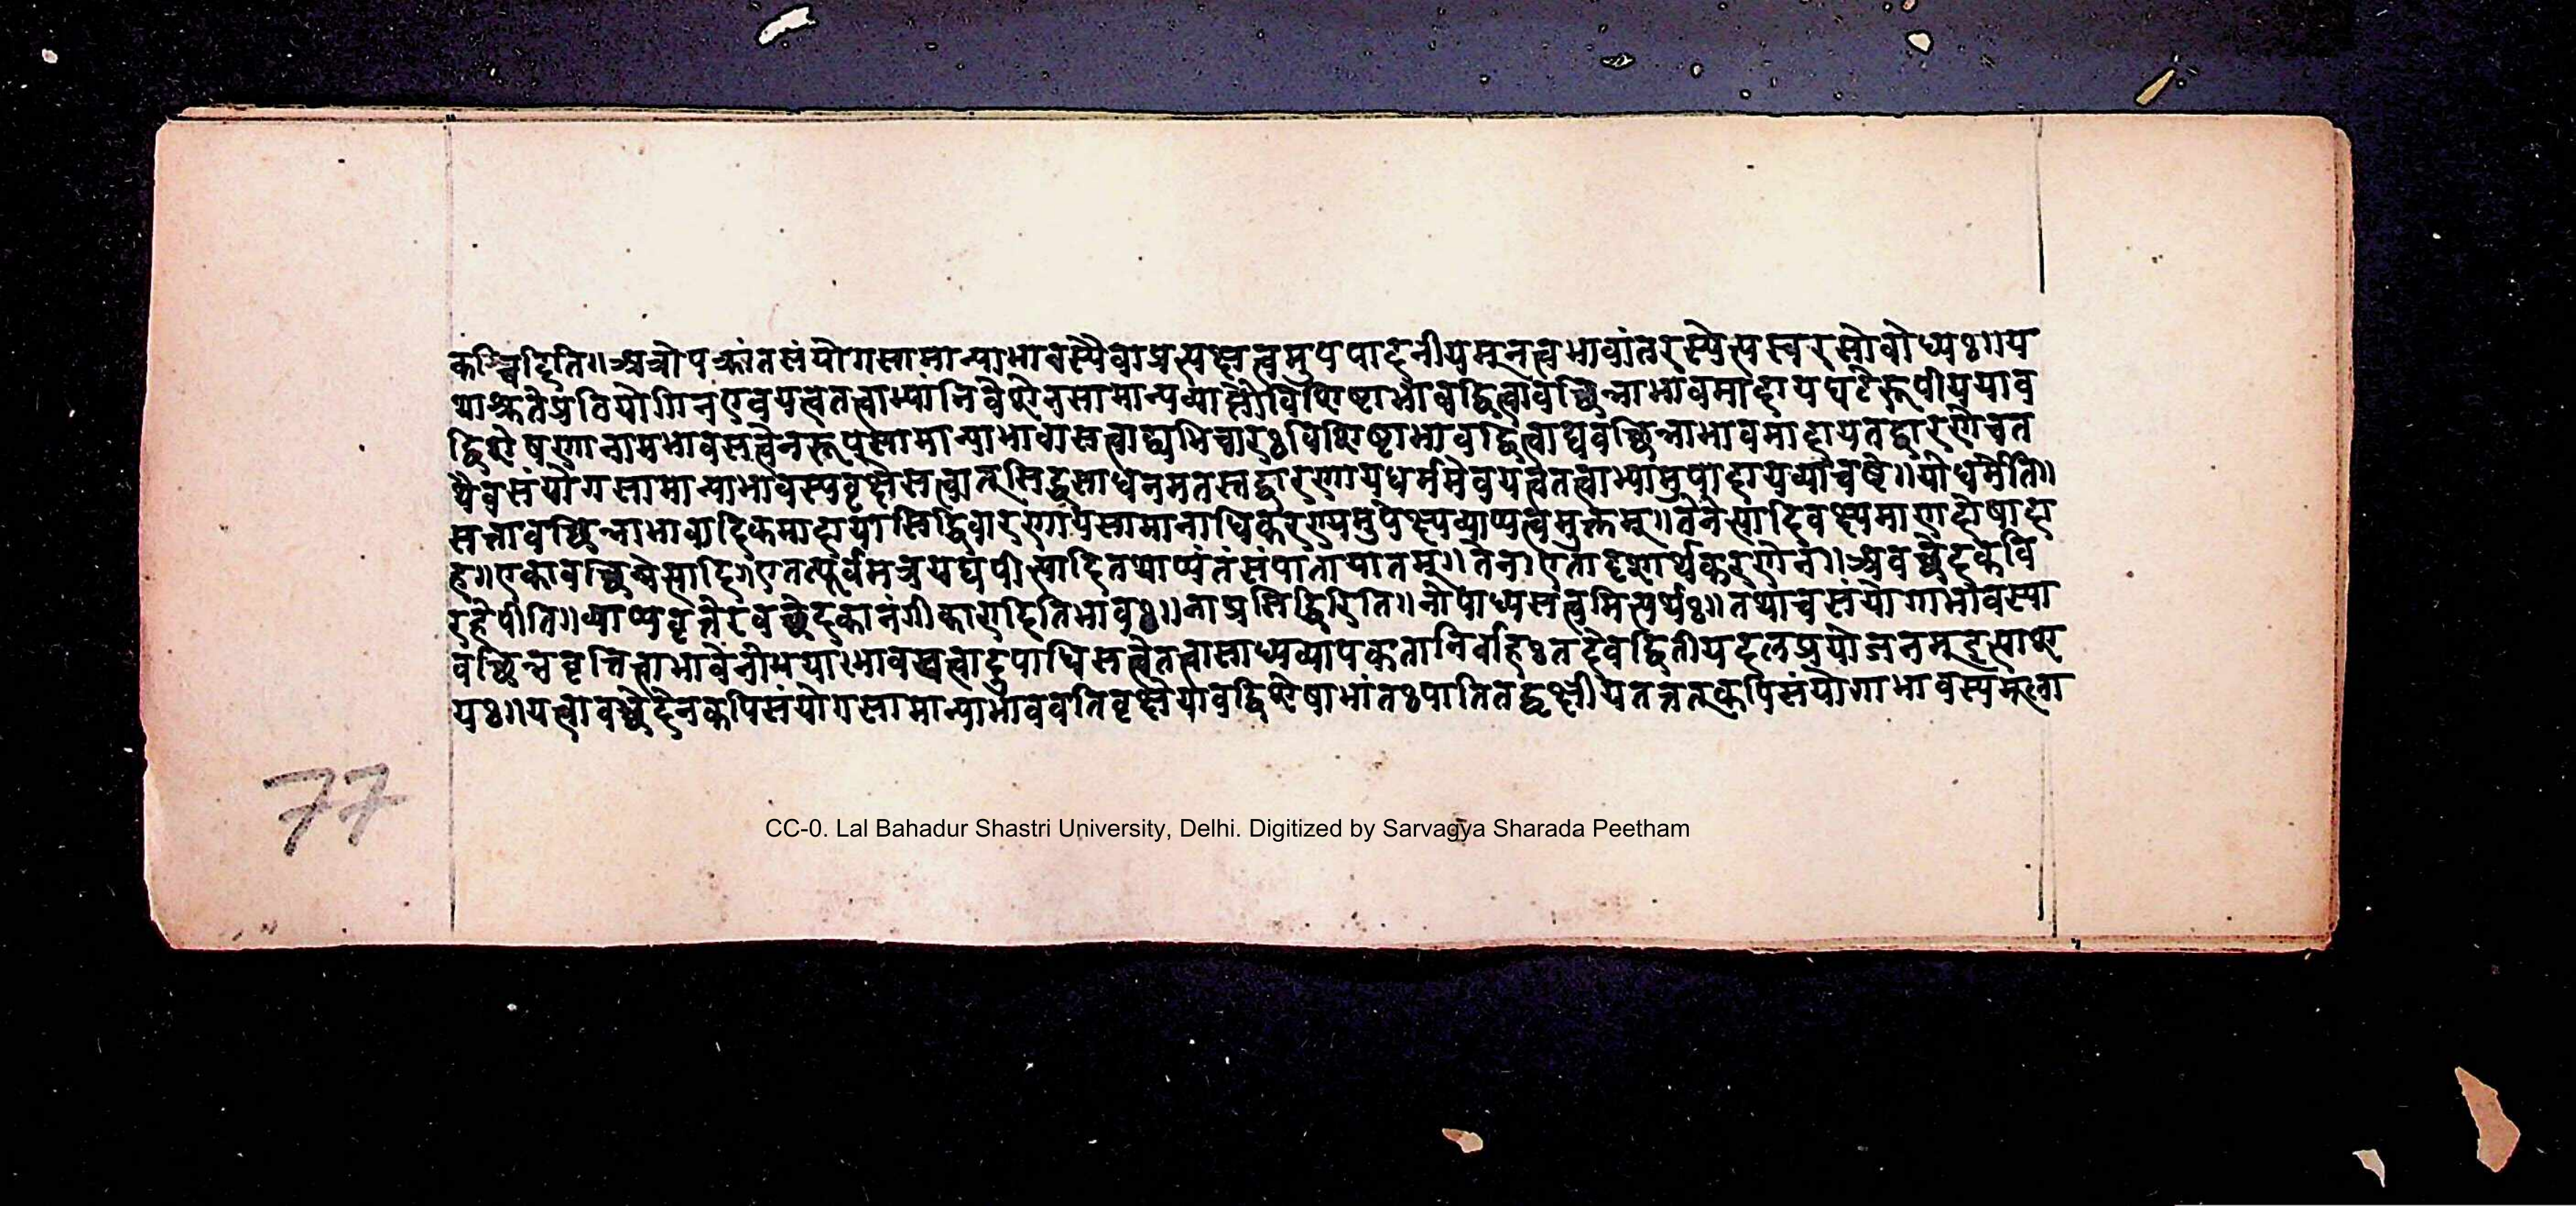 कश्चिदिति॥अत्रोपक्रांतसंयोगसामान्याभावस्यैवाप्रत्यक्षत्वमुपपादनीयमूनत्वभावांतरस्येत्यस्वरसोबोध्यः॥य
थाश्रुतेप्रतियोगिनएवयत्वतत्वाभ्यांनिवेशेनसामान्यव्याप्तौविशिष्टाभावद्वित्वावच्छिन्नाभावमादायघटेरूपीययाव
द्विशेषणानामभावसत्वेनरूपसामान्याभावासत्वाद्व्यभिचारःविशिष्टाभावद्वित्वाद्यवच्छिन्नाभावमादायतद्वारणेचत
थैवसंयोगसामान्याभावस्यवृक्षेसत्वात्सिद्धसाधनमतस्तद्वारणायधर्ममेवयत्वतत्वाभ्यामुपादायव्याचष्टे॥योधर्मेति॥
सत्तावच्छिन्नाभावादिकमादायासिद्धिवारणायसामानाधिकरण्यमुपेक्ष्यव्याप्यत्वमुक्तम्॥तेनेत्यादिवक्ष्यमाणदोषादा
ह॥एकावच्छिन्नेत्यादि॥एतत्पूर्वमत्रयद्यपीत्यादितथाप्यंतंसंपातायातम्॥तेन॥एतादृशार्थकरणेन॥अवच्छेदकवि
रहेपीति॥व्याप्यवृत्तेरवच्छेदकानंगीकारादितिभावः॥नाप्रसिद्धिरिति॥नोपाध्यसत्वमित्यर्थः॥तथाचसंयोगाभावस्या
वच्छिन्नवृत्तित्वाभावेनोभयाभावसत्वादुपाधिसत्वेतत्वासाध्यव्यापकतानिर्वाहःतदैवद्वितीयदलप्रयोजनमूहृत्याश
यः॥यत्वावच्छेदेनकपिसंयोगसामान्याभाववतिवृक्षेयावद्विशेषाभांतःपातितद्वृक्षीयतत्तत्कपिसंयोगाभावस्यमूला
77
CC-0. Lal Bahadur Shastri University, Delhi. Digitized by Sarvagya Sharada Peetham